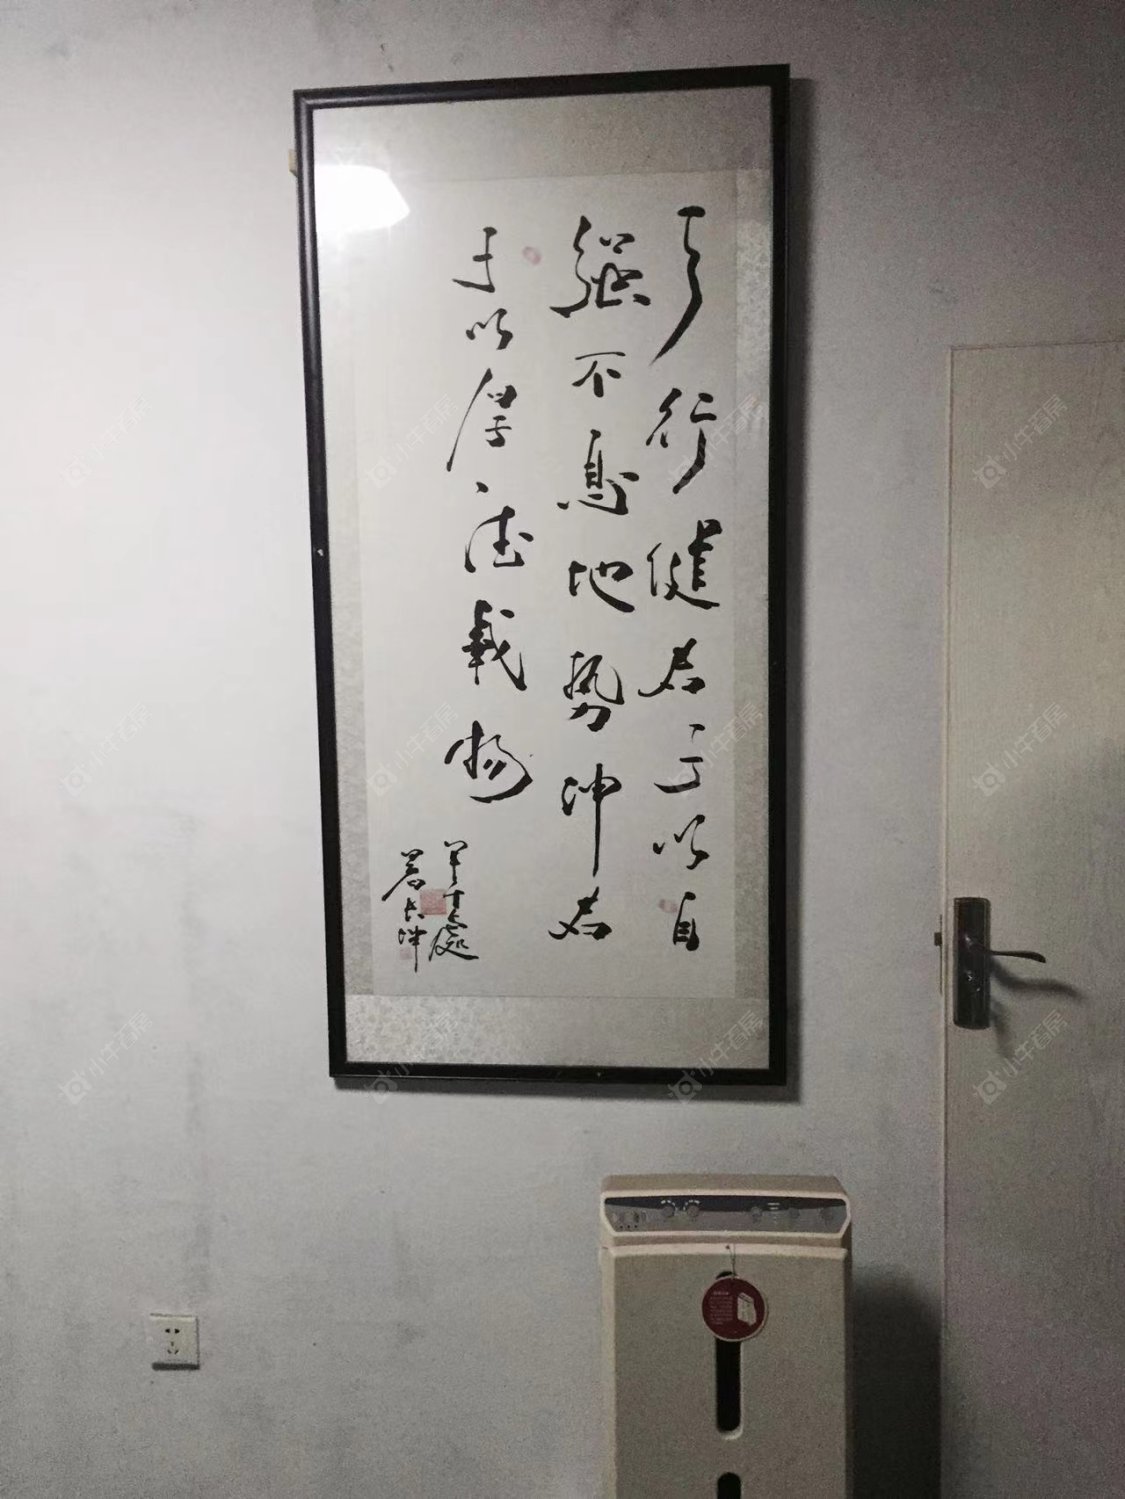 天行健君子以自
强不息地势坤君
子以厚德载物
小牛看房
小牛看房
小牛看房
小牛看房
小牛看房
小牛看房
小牛看房
小牛看房
小牛看房
小牛看房
小牛看房
小牛看房